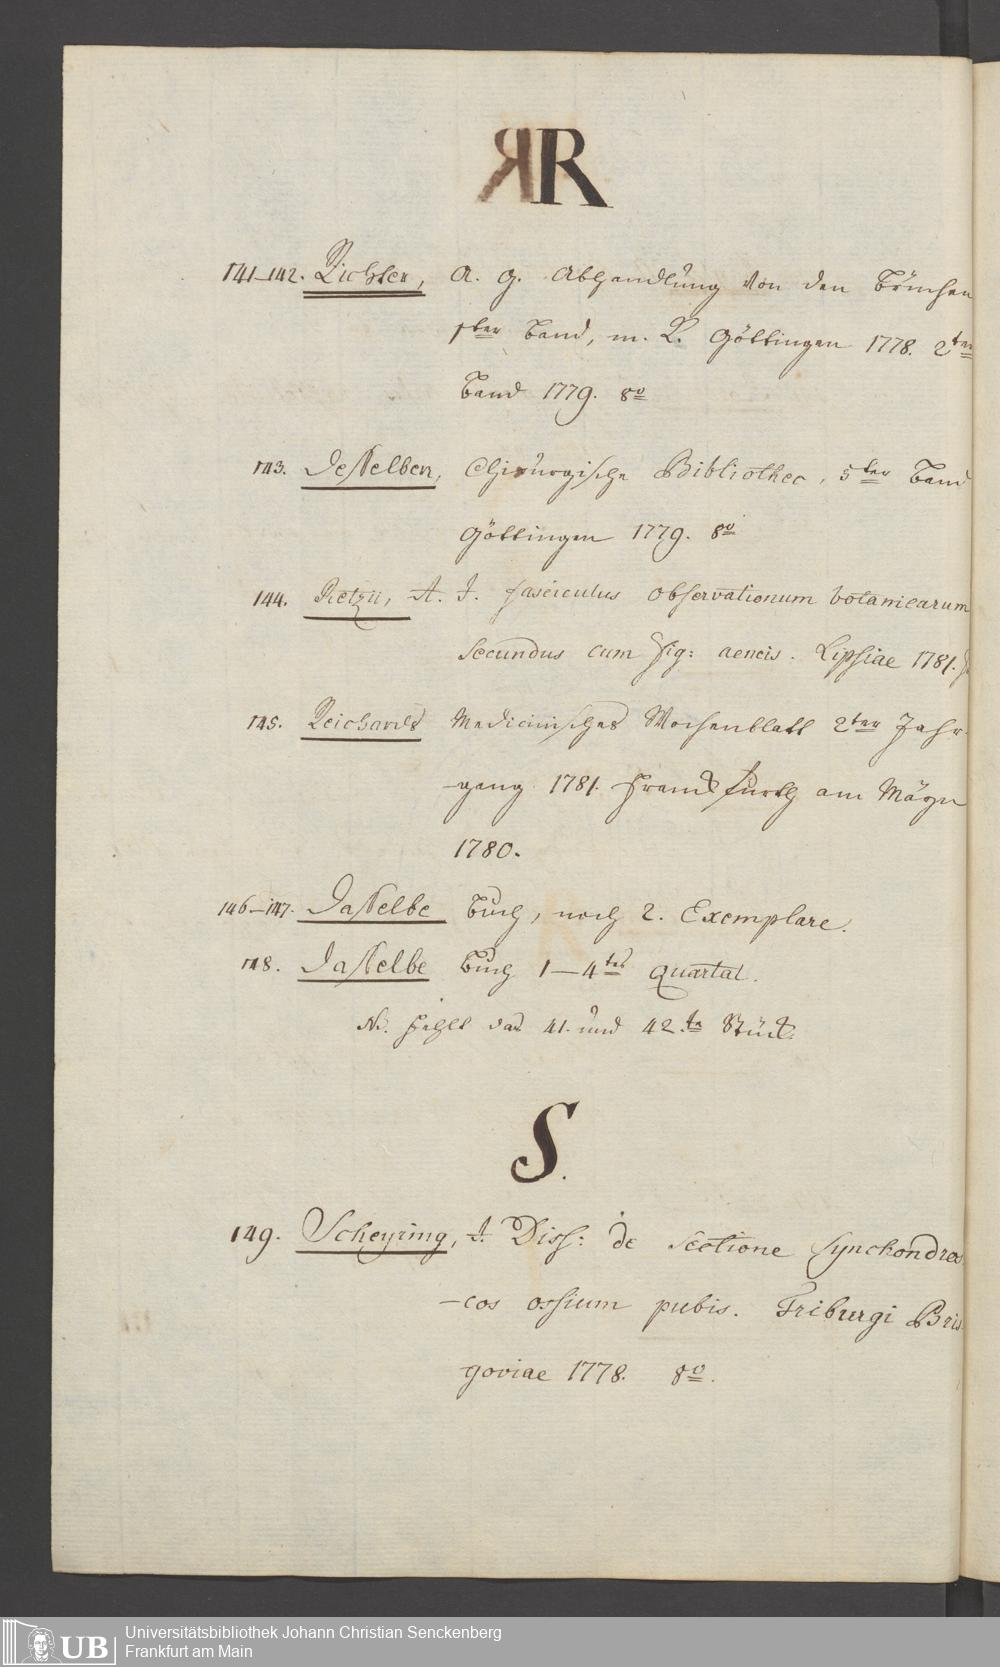 R
141–142. Richter, A. G. Abhandlung von den Brüchen
1ter Band, m. K. Göttingen 1778. 2ter
Band 1779. 8o
143. Desselben, Chirurgische Bibliothec, 5ter Band
Göttingen 1779. 8o
144. Retzii, A. J. fasciculus observationum botanicarum
secundus cum fig: aeneis. Lipsiae 1781.
145. Reichards Medicinisches Wochenblatt 2ter Jahr-
-gang 1781. Franckfurth am Mayn
1780.
146–147. Dasselbe Buch, noch 2. Exemplare.
148. Dasselbe Buch 1–4tes Quartal.
NB. fehlt das 41. und 42.te Stück.
S.
149. Scheyring, J. Diss: de sectione synchondros
-eos ossium pubis. Friburgi Bris
goviae 1778. 8o.
UB Universitätsbibliothek Johann Christian Senckenberg
Frankfurt am Main